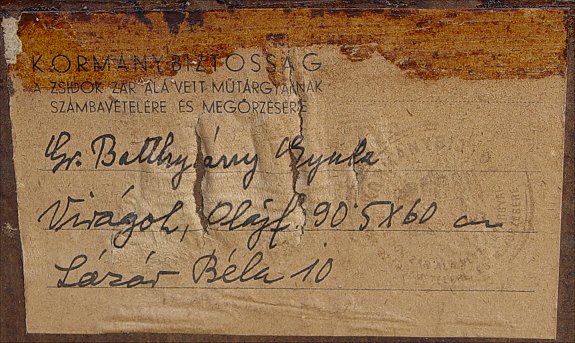 KORMÁNYBIZTOSSÁG
A ZSIDÓK ZÁR ALÁ VETT MŰTÁRGYAINAK
SZÁMBAVÉTELÉRE ÉS MEGŐRZÉSÉRE
Gr. Batthyány Gyula
Virágok, Olajf. 90·5X60 cm
Lázár Béla 10